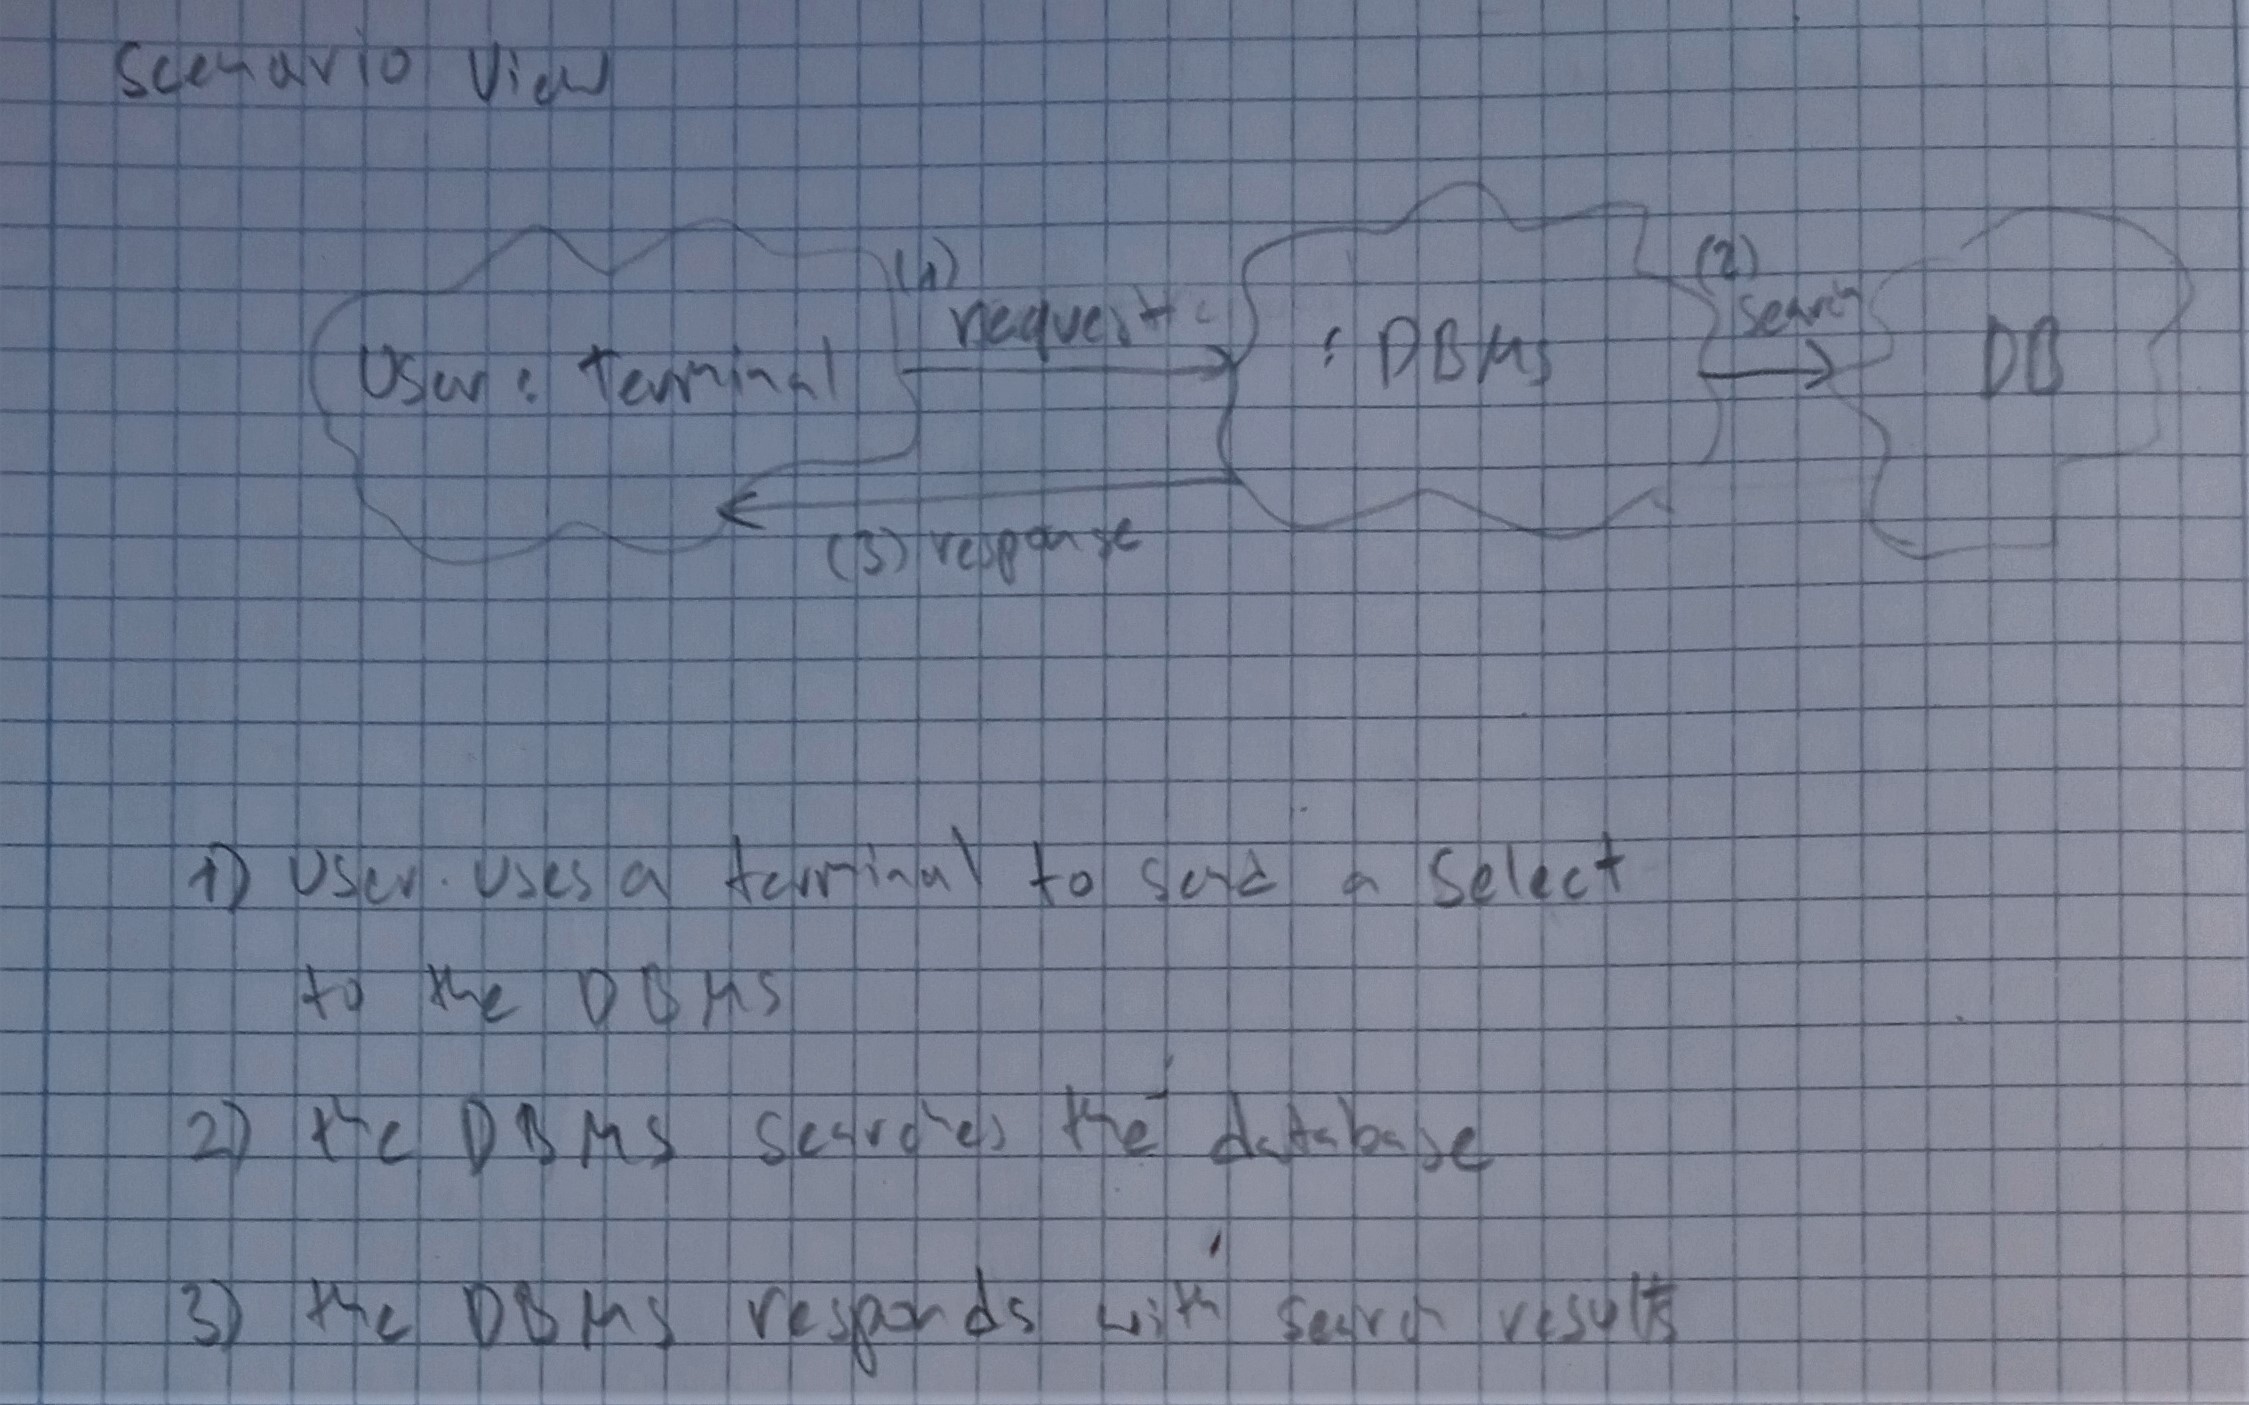 Scenario View
(1)
request
(2)
search
User : terminal
: DBMS
DB
(3) response
1) User uses a terminal to send a Select
to the DBMS
2) the DBMS searches the database
3) the DBMS responds with search results